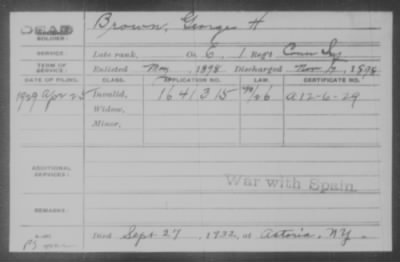 DEAD
SOLDIER: Brown, George H
SERVICE: Late rank, Co. E, 1 Reg't Conn Inf
TERM OF SERVICE: Enlisted May, 1898 Discharged Nov, 1898
DATE OF FILING. CLASS. APPLICATION NO. LAW. CERTIFICATE NO.
1929 Apr 25 Invalid, 1641315 A12-6-29
Widow,
Minor,
ADDITIONAL SERVICES:
War with Spain.
REMARKS:
Died Sept 27, 1932, at Astoria, NY.